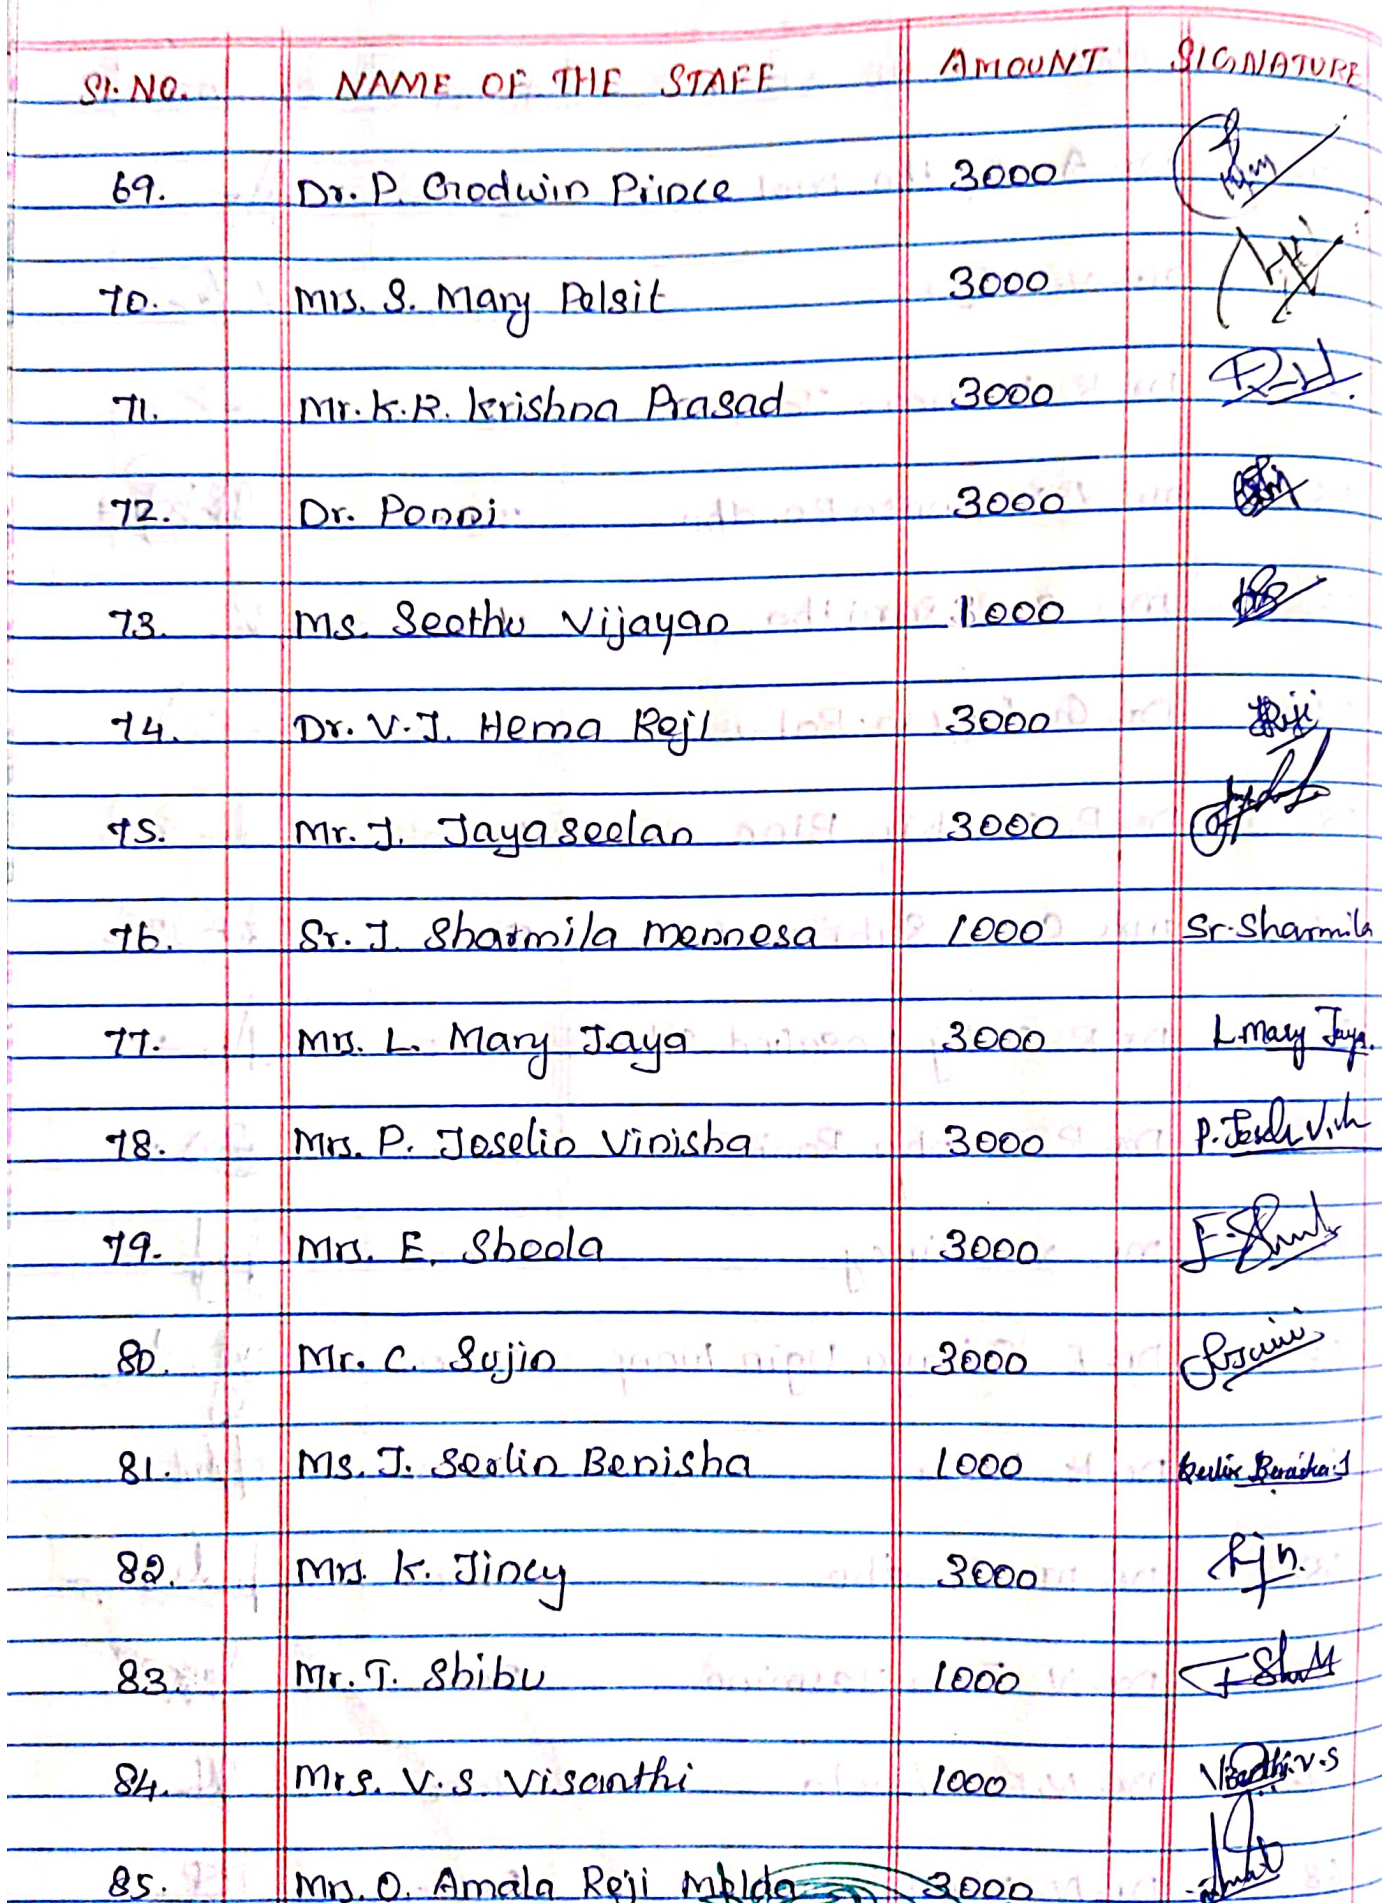 Sl. NO. NAME OF THE STAFF AMOUNT SIGNATURE
69. Dr. P. Godwin Prince 3000
70. Mrs. S. Mary Pelsit 3000
71. Mr. K.R. Krishna Prasad 3000
72. Dr. Ponni 3000
73. Ms. Seethu Vijayan 1000
74. Dr. V.J. Hema Reji 3000 Reji
75. Mr. J. Jayaseelan 3000
76. Sr. J. Sharmila mennesa 1000 Sr. Sharmila
77. Mrs. L. Mary Jaya 3000 L. Mary Jaya.
78. Mrs. P. Joselin Vinisha 3000
79. Mrs. E. Sheela 3000
80. Mr. C. Sujin 3000
81. Ms. J. Serlin Benisha 1000 Serlin Benisha.J
82. Mrs. K. Jincy 3000
83. Mr. T. Shibu 1000
84. Mrs. V.S. Visanthi 1000
85. Mrs. O. Amala Reji 3000